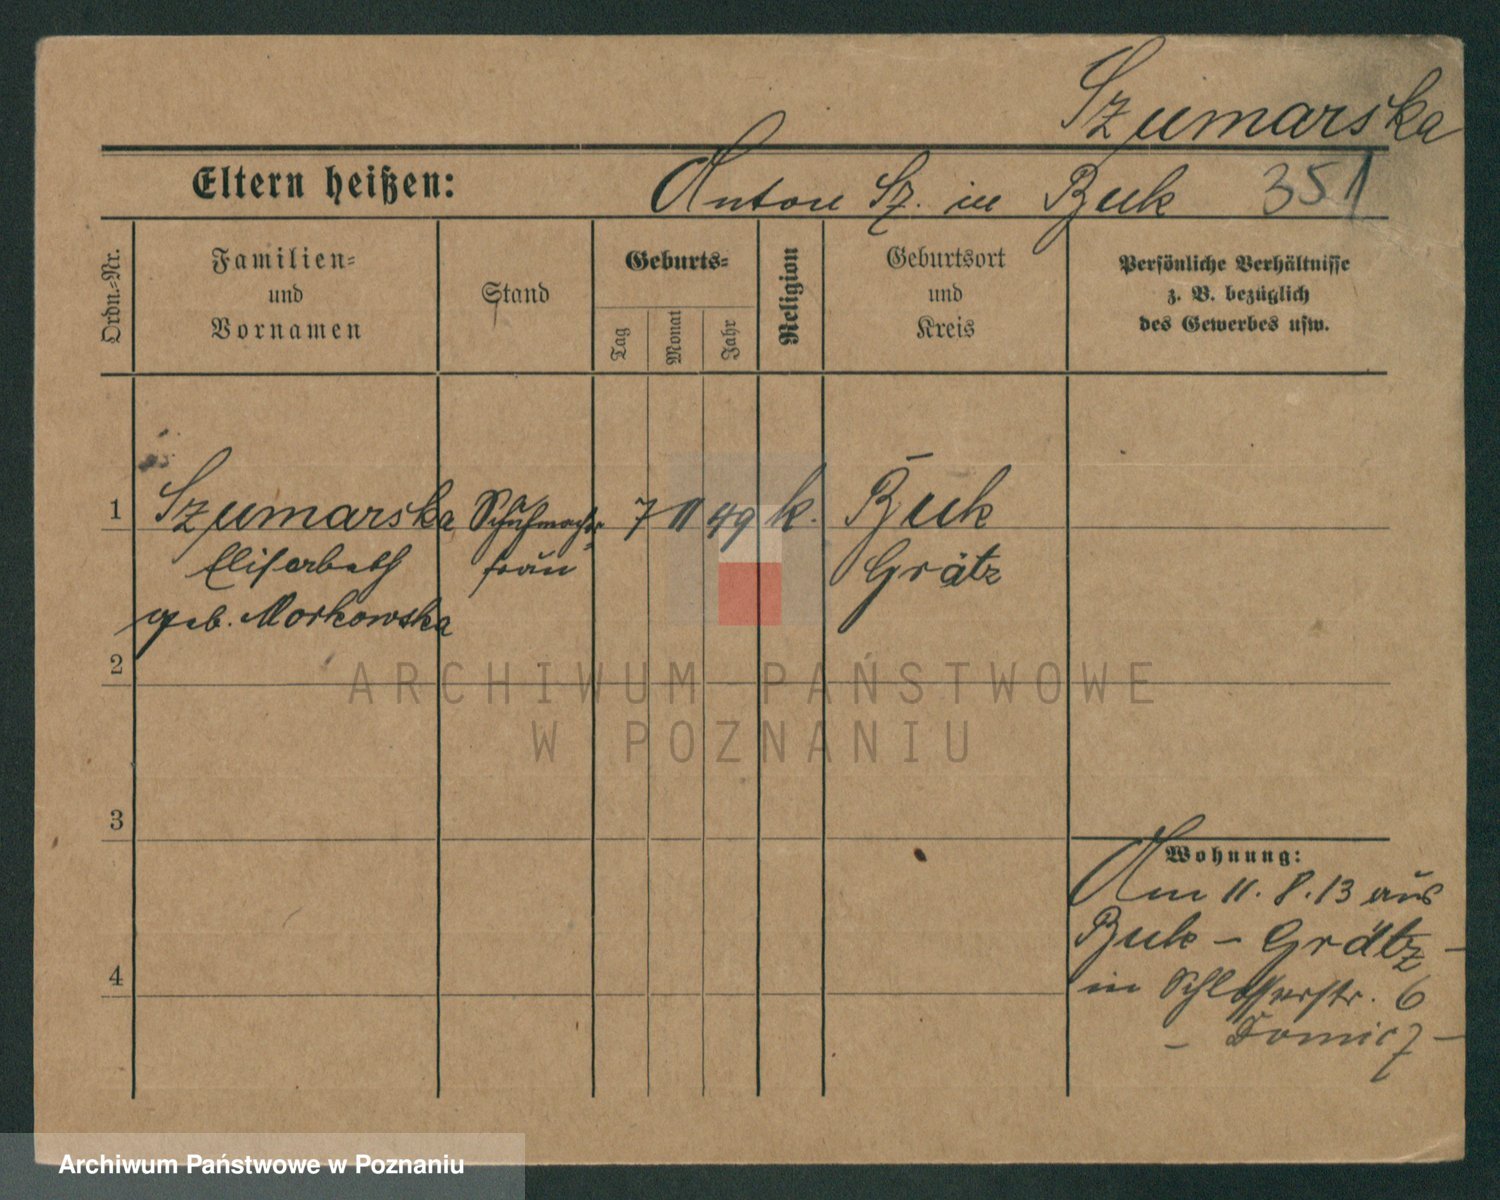 Szumarska
Eltern heißen: Anton Sz. in Buk 351
Ordn.-Nr.
Familien-
und
Vornamen
Stand
Geburts-
Tag
Monat
Jahr
Religion
Geburtsort
und
Kreis
Persönliche Verhältnisse
z. B. bezüglich
des Gewerbes usw.
1 Szumarska Schuhmacher 7 11 49 k. Buk
Elisabeth frau Grätz
geb. Morkowska
2
ARCHIWUM PAŃSTWOWE
W POZNANIU
3
Wohnung:
Am 11. 8. 13 aus
Buk - Grätz -
in Schlosserstr. 6
4
- Domicz -
Archiwum Państwowe w Poznaniu